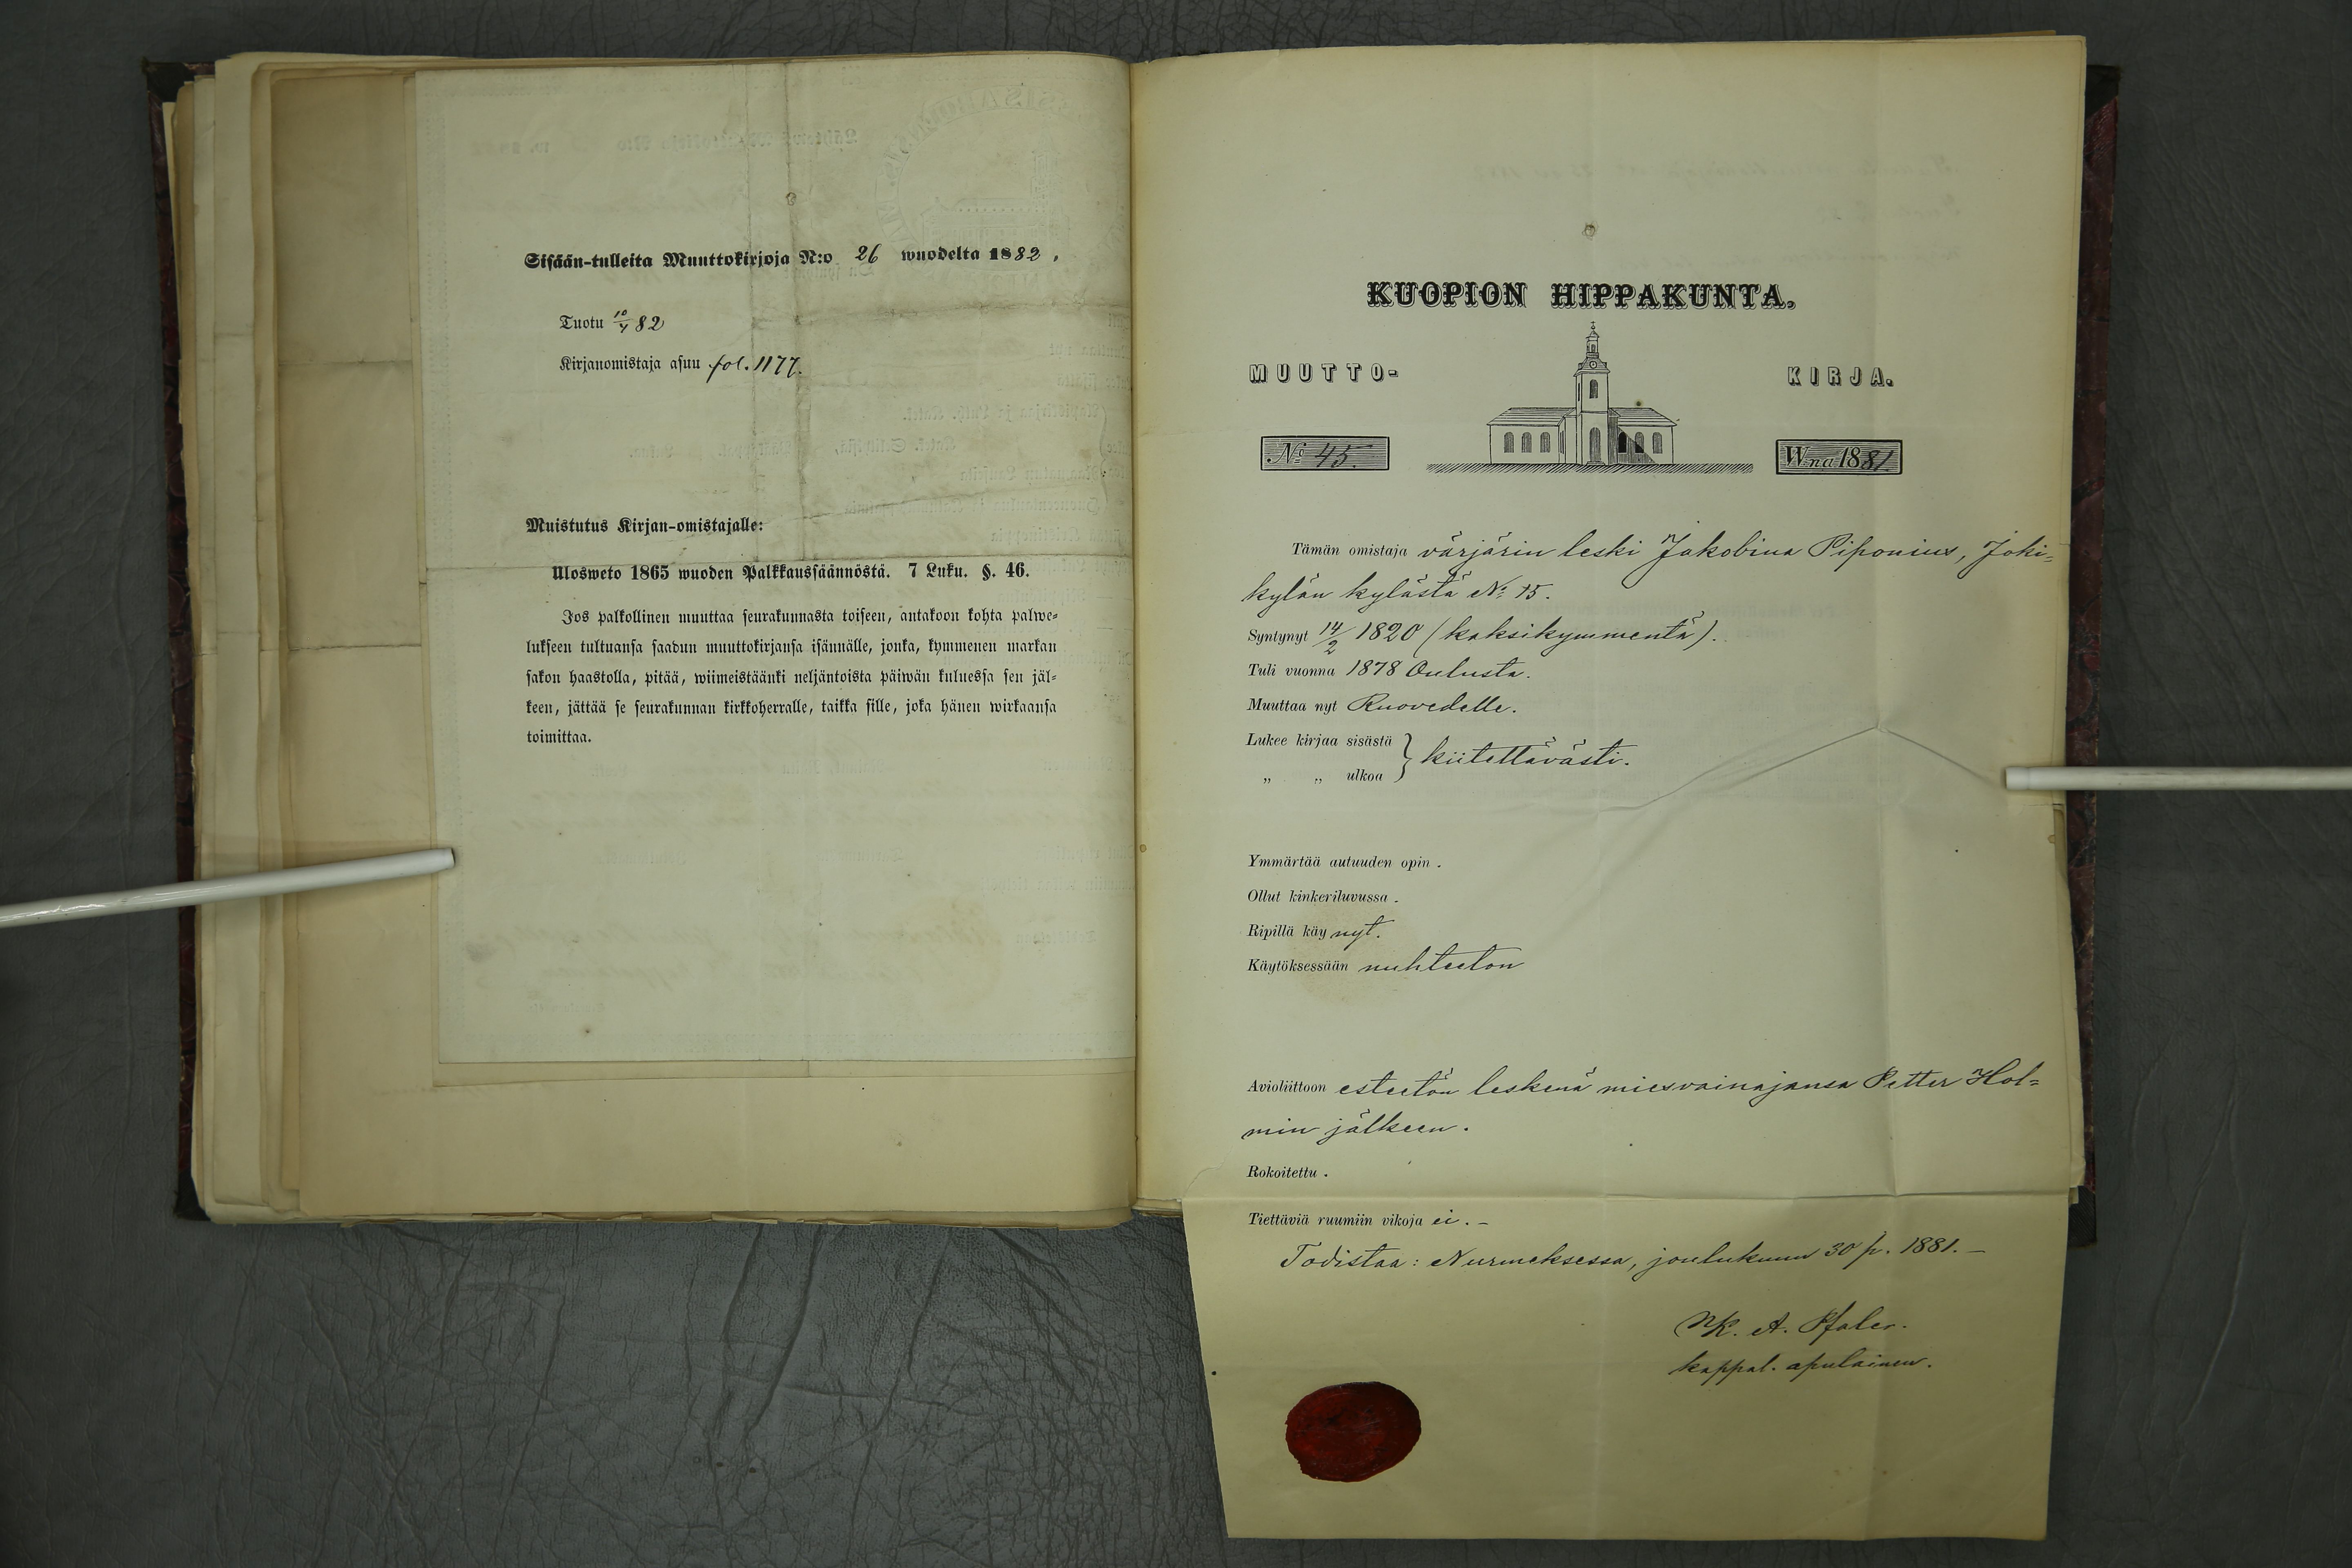 Sisään-tulleita Muuttokirjoja N:o 26 wuodelta 1882.
Tuotu 10/4 82
Kirjanomistaja asuu fol. 1177.
Muistutus Kirjan-omistajalle:
Ulosweto 1865 wuoden Palkkaussäännöstä. 7 Luku. §. 46.
Jos palkollinen muuttaa seurakunnasta toiseen, antakoon kohta palwe-
lukseen tultuansa saadun muuttokirjansa isännälle, jonka, kymmenen markan
sakon haastolla, pitää, wiimeistäänki neljäntoista päiwän kuluessa sen jäl-
keen, jättää se seurakunnan kirkkoherralle, taikka sille, joka hänen wirkaansa
toimittaa.
KUOPION HIPPAKUNTA.
MUUTTO- KIRJA.
No 45. Wna 1881.
Tämän omistaja värjärin leski Jakobina Piponius, Joki-
kylän kylästä No 15.
Syntynyt 14/2 1820 (kaksikymmentä).
Tuli vuonna 1878 Oulusta.
Muuttaa nyt Ruovedelle.
Lukee kirjaa sisästä } kiitettävästi.
„ „ ulkoa
Ymmärtää autuuden opin.
Ollut kinkeriluvussa.
Ripillä käy nyt.
Käytöksessään nuhteeton
Avioliittoon esteetön leskenä miesvainajansa Petter Hol-
min jälkeen.
Rokoitettu.
Tiettäviä ruumiin vikoja ei. –
Todistaa: Nurmeksessa, joulukuun 30 p. 1881. –
A. Pfaler.
kappal. apulainen.